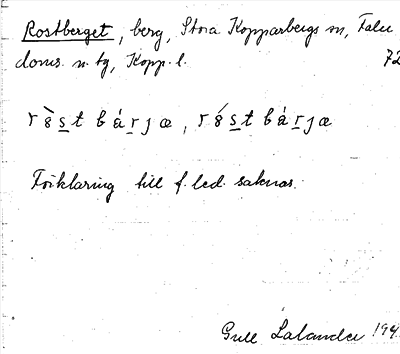 Rostberget, berg, Stora Kopparbergs sn, Falu
doms. n. tg, Kopp. l.
72
Förklaring till f. led. saknas.
Gull Lalander 194